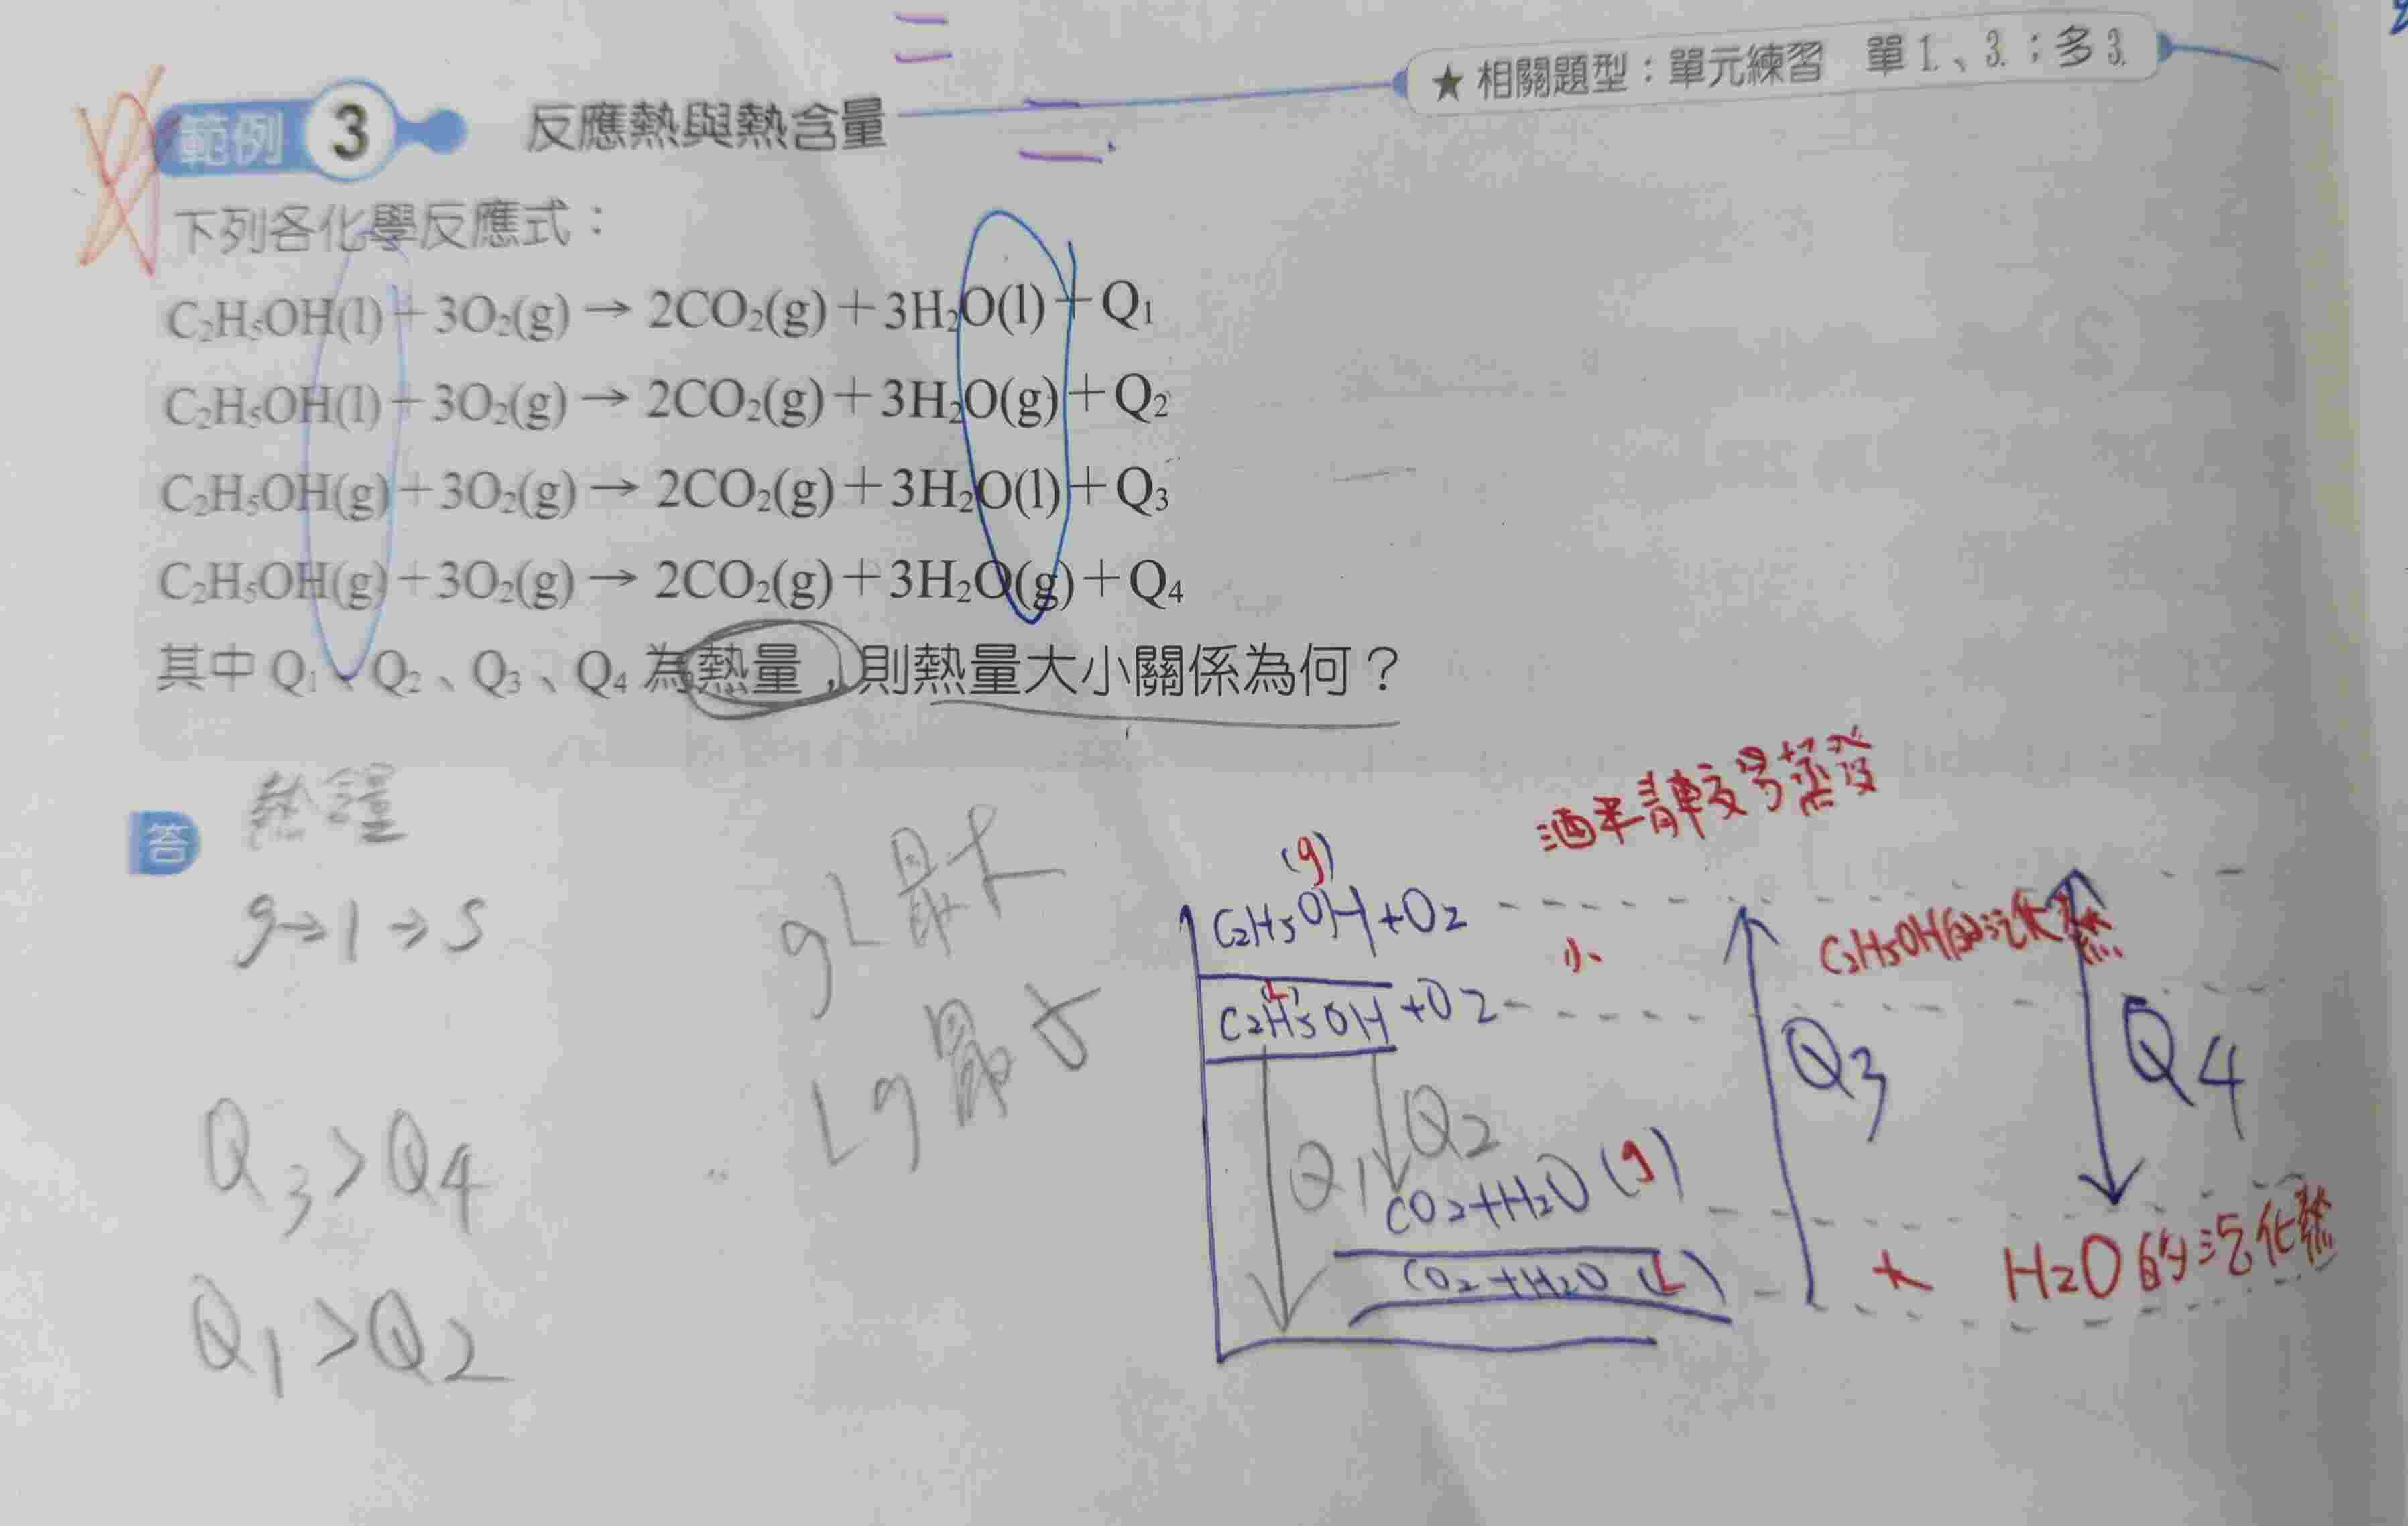 ★相關題型：單元練習 單1.、3.；多3.
範例 3 反應熱與熱含量
下列各化學反應式：
C₂H₅OH(l)＋3O₂(g)→2CO₂(g)＋3H₂O(l)＋Q₁
C₂H₅OH(l)＋3O₂(g)→2CO₂(g)＋3H₂O(g)＋Q₂
C₂H₅OH(g)＋3O₂(g)→2CO₂(g)＋3H₂O(l)＋Q₃
C₂H₅OH(g)＋3O₂(g)→2CO₂(g)＋3H₂O(g)＋Q₄
其中 Q₁、Q₂、Q₃、Q₄ 為熱量，則熱量大小關係為何？
答
熱含量
g→l→s
Q₃>Q₄
Q₁>Q₂
gL最大
Lg最小
酒精較易蒸發
(g)
C₂H₅OH+O₂
小
C₂H₅OH的汽化熱
(L)
C₂H₅OH+O₂
Q₃
Q₄
Q₂
Q₁
CO₂+H₂O(g)
CO₂+H₂O(L)
大
H₂O的汽化熱